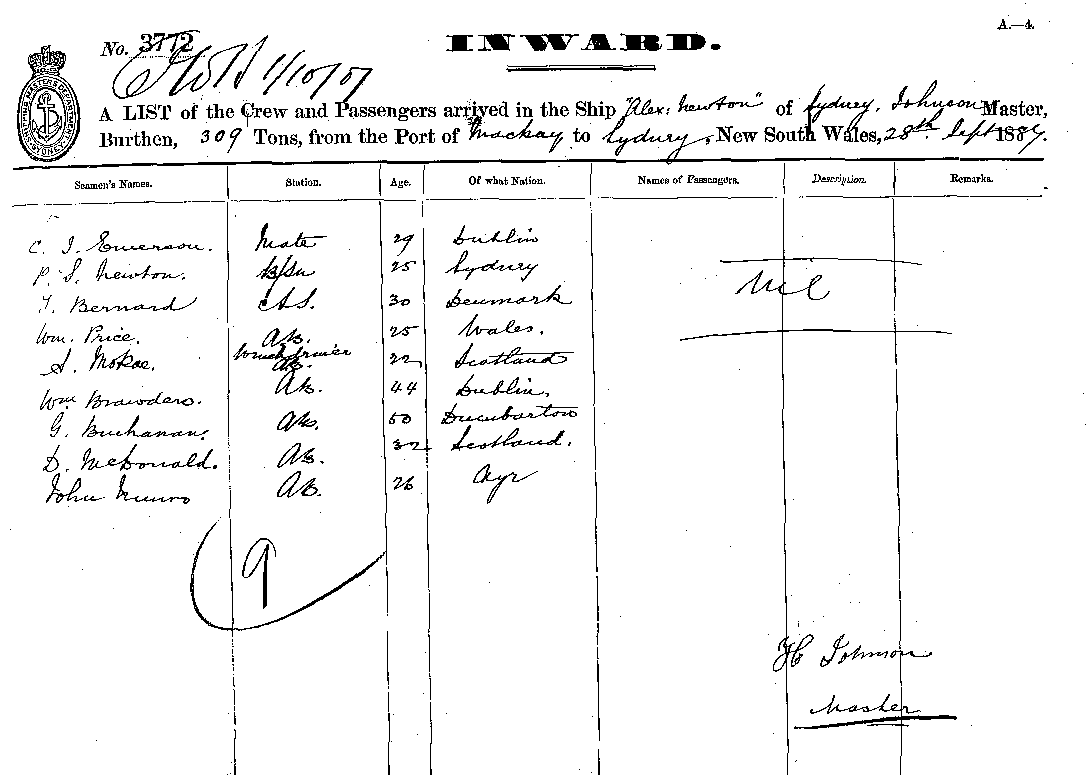 A.—4.
No. 3772
INWARD.
1/10/87
A LIST of the Crew and Passengers arrived in the Ship "Alex: Newton" of Sydney, Johnson Master,
Burthen, 309 Tons, from the Port of Mackay to Sydney, New South Wales, 28th Sept 1887.
Seamen's Names. Station. Age. Of what Nation. Names of Passengers. Description. Remarks.
C. I. Emerson. Mate 29 Dublin
P. S. Newton. 25 Sydney
T. Bernard 30 Denmark
Wm. Price. AB. 25 Wales.
S. McKae. AB. 22 Scotland
Wm Browders. AB. 44 Dublin.
G. Buchanan. AB. 50 Dumbarton
D. McDonald. AB. 32 Scotland.
John Munro AB. 26 Ayr
Nil
9
H Johnson
Master